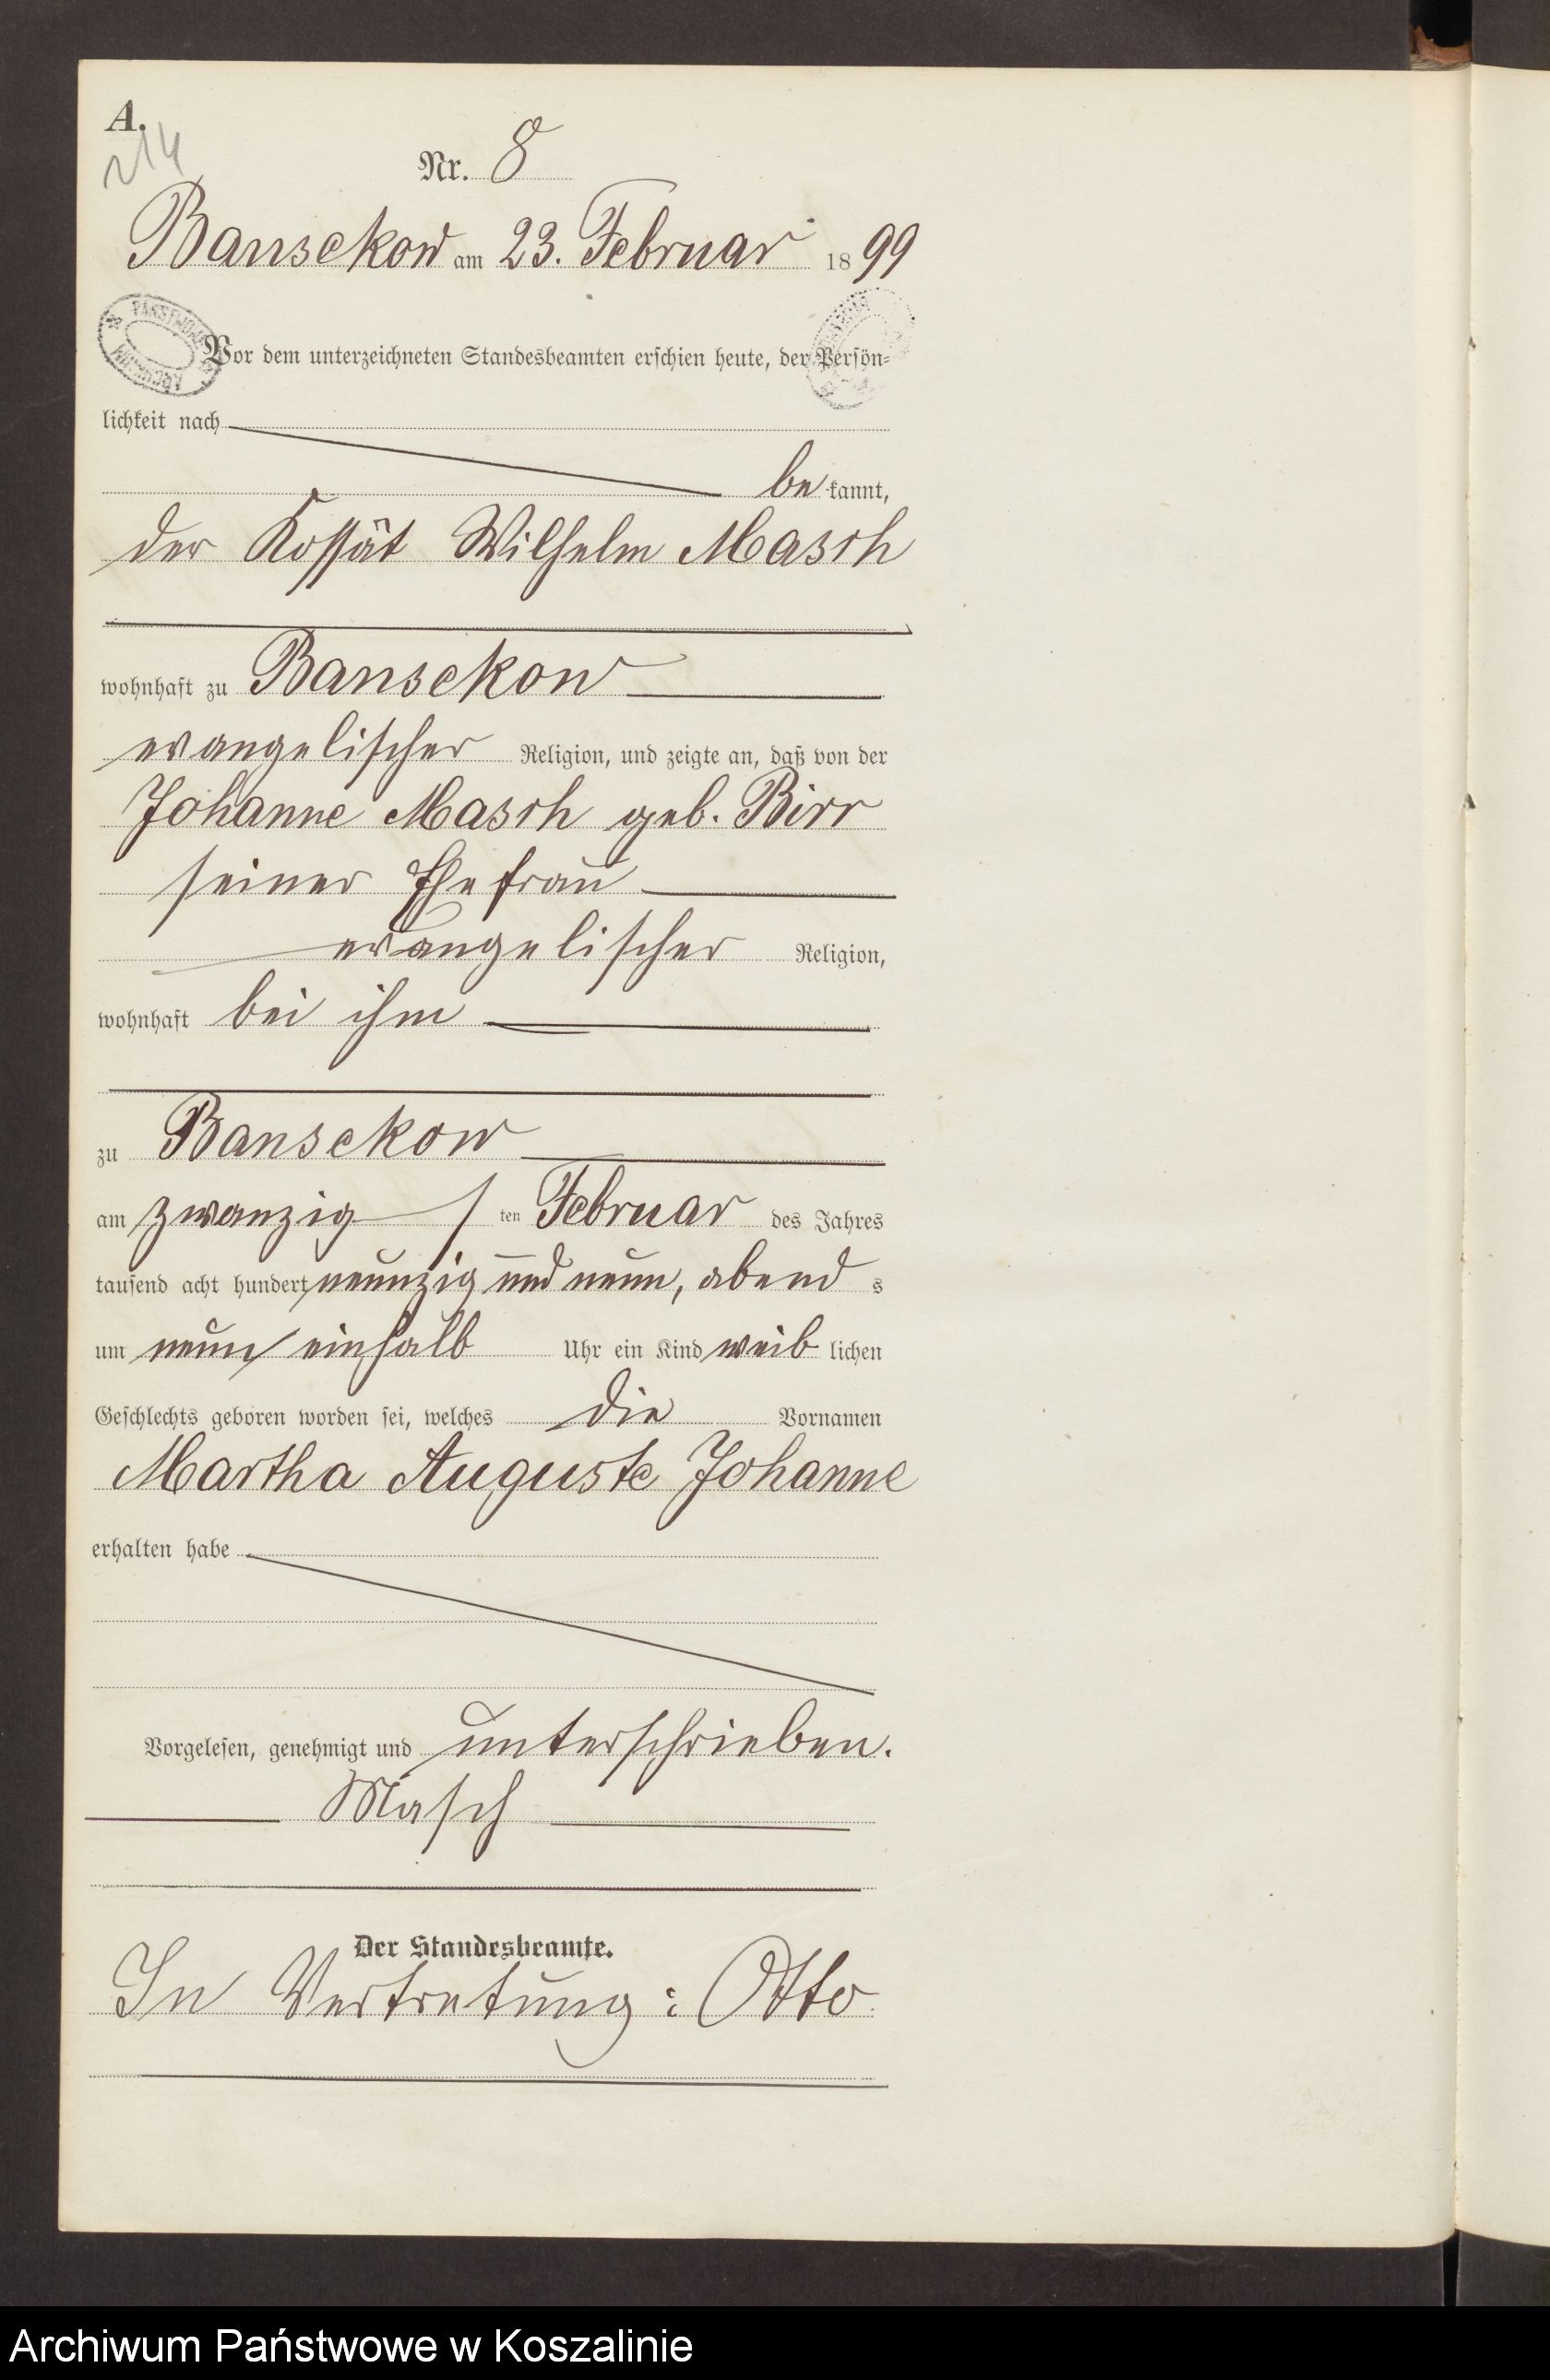 A.
214
Nr. 8
Bansekow am 23. Februar 1899
Vor dem unterzeichneten Standesbeamten erschien heute, der Persön-
lichkeit nach
bekannt,
der Kossät Wilhelm Masch
wohnhaft zu Bansekow
evangelischer Religion, und zeigte an, daß von der
Johanne Masch geb. Birr
seiner Ehefrau
evangelischer Religion,
wohnhaft bei ihm
zu Bansekow
am zwanzigten Februar des Jahres
tausend acht hundert neunzig und neun, abends
um neun einhalb Uhr ein Kind weiblichen
Geschlechts geboren worden sei, welches die Vornamen
Martha Auguste Johanne
erhalten habe
Vorgelesen, genehmigt und unterschrieben.
Masch
Der Standesbeamte.
In Vertretung: Otto
Archiwum Państwowe w Koszalinie